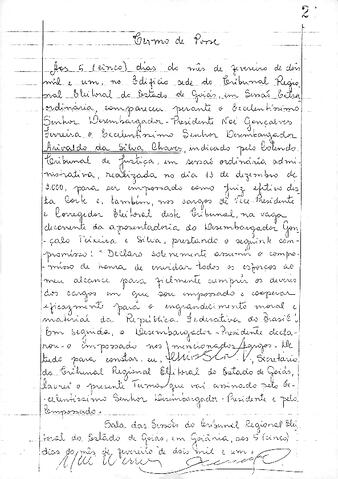 2
Termo de Posse
Aos 5 (cinco) dias do mês de fevereiro de dois
mil e um, no Edifício sede do Tribunal Regio
nal Eleitoral do Estado de Goiás, em Sessão Extra
ordinária, compareceu perante o Excelentíssimo
Senhor Desembargador-Presidente Noé Gonçalves
Ferreira o Excelentíssimo Senhor Desembargador
Arivaldo da Silva Chaves, indicado pelo Colendo
Tribunal de Justiça, em sessão ordinária admi-
nistrativa, realizada no dia 13 de dezembro de
2.000, para ser empossado como Juiz efetivo des
ta Corte e, também, nos cargos de Vice-Presidente
e Corregedor Eleitoral deste Tribunal, na vaga
decorrente da aposentadoria do Desembargador Gon
çalo Teixeira e Silva, prestando o seguinte com-
promisso: "Declaro solenemente assumir o compro-
misso de honra de envidar todos os esforços ao
meu alcance para fielmente cumprir os deveres
dos cargos em que sou empossado e cooperar
eficazmente para o engrandecimento moral e
material da República Federativa do Brasil".
Em seguida, o Desembargador-Presidente decla-
rou o empossado nos mencionados cargos. De
tudo, para constar, eu, Secretário
do Tribunal Regional Eleitoral do Estado de Goiás,
lavrei o presente Termo, que vai assinado pelo Ex-
celentíssimo Senhor Desembargador-Presidente e pelo
Empossado.
Sala das Sessões do Tribunal Regional Elei
toral do Estado de Goiás, em Goiânia, aos 5 (cinco)
dias do mês de fevereiro de dois mil e um.